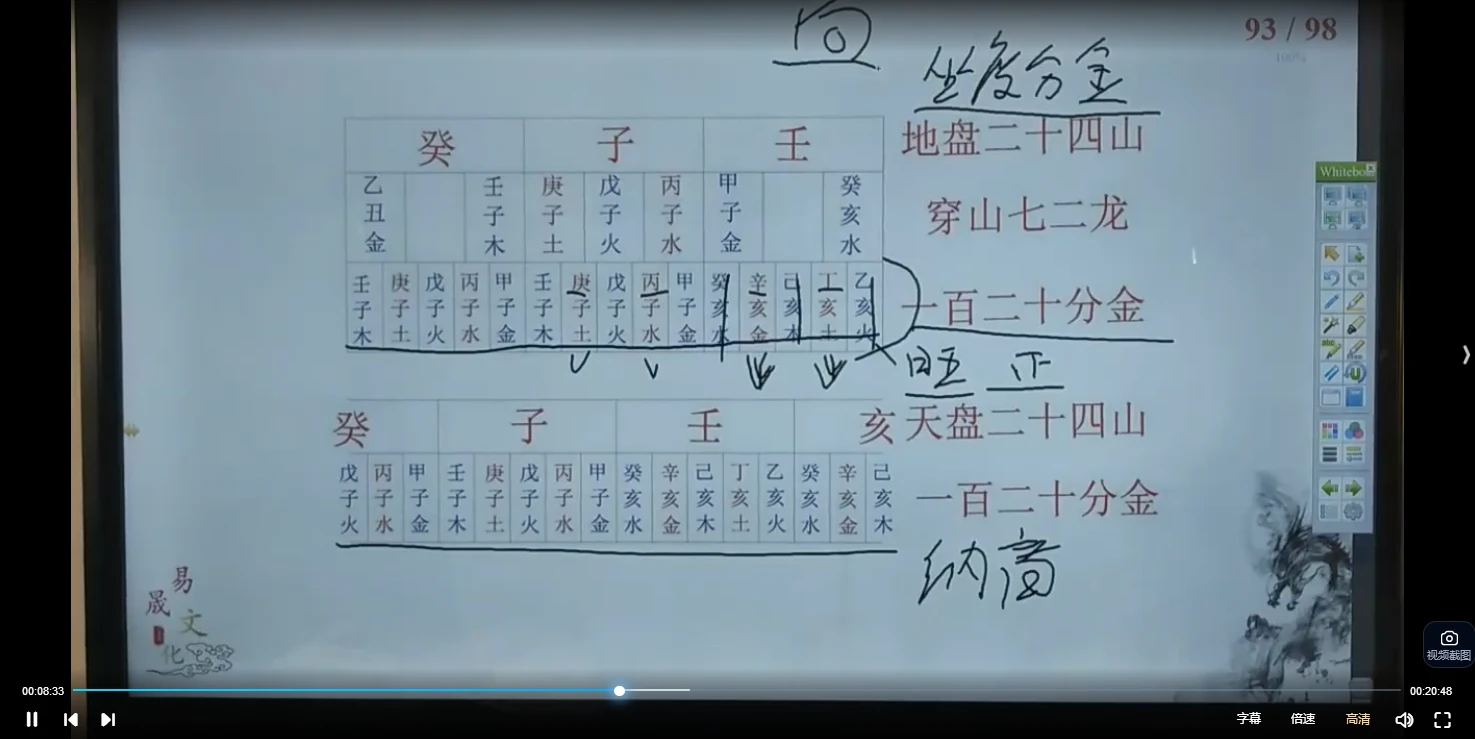 93 / 98
100%
向
坐度分金
癸 子 壬 地盘二十四山
乙丑金 壬子木 庚子土 戊子火 丙子水 甲子金 癸亥水 穿山七二龙
壬子木 庚子土 戊子火 丙子水 甲子金 壬子木 庚子土 戊子火 丙子水 甲子金 癸亥水 辛亥金 己亥木 丁亥土 乙亥火 一百二十分金
旺 正
癸 子 壬 亥 天盘二十四山
戊子火 丙子水 甲子金 壬子木 庚子土 戊子火 丙子水 甲子金 癸亥水 辛亥金 己亥木 丁亥土 乙亥火 癸亥水 辛亥金 己亥木 一百二十分金
易晟文化
视频截图
00:08:33
00:20:48
字幕 倍速 高清